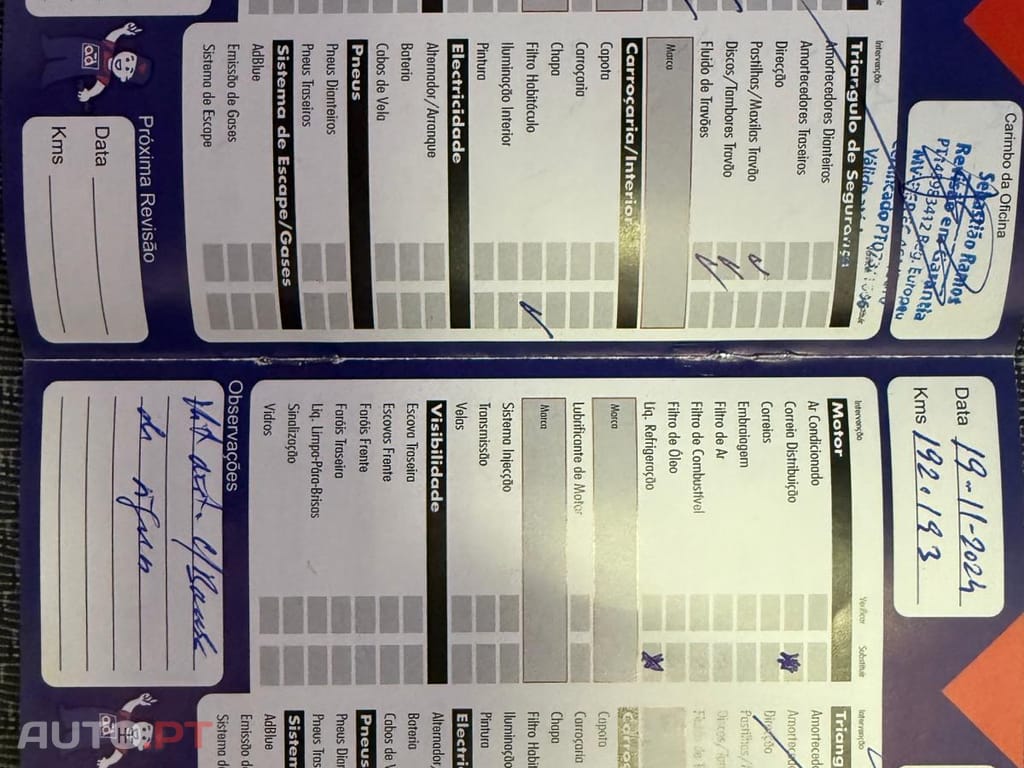 Intervenção
Triângulo de Segurança
Amortecedores Dianteiros
Amortecedores Traseiros
Direcção
Pastilhas/Maxilas Travão
Discos/Tambores Travão
Fluido de Travões
Marca
Carroçaria/Interior
Capota
Carroçaria
Chapa
Filtro Habitáculo
Iluminação Interior
Pintura
Electricidade
Alternador/Arranque
Bateria
Cabos de Vela
Pneus
Pneus Dianteiros
Pneus Traseiros
Sistema de Escape/Gases
AdBlue
Emissão de Gases
Sistema de Escape
Carimbo da Oficina
Sebastião Ramos
Próxima Revisão
Data
Kms
Data 19-11-2024
Kms 192.193
Intervenção
Verificar
Substituir
Motor
Ar Condicionado
Correia Distribuição
Correias
Embraiagem
Filtro de Ar
Filtro de Combustível
Filtro de Óleo
Líq. Refrigeração
Marca
Lubrificante de Motor
Marca
Sistema Injecção
Transmissão
Velas
Visibilidade
Escova Traseira
Escovas Frente
Faróis Frente
Faróis Traseira
Líq. Limpa-Pára-Brisas
Sinalização
Vidros
Observações
Kit dist. c/Bomba
de água
Intervenção
Triâng
Amorteced
Amorteced
Direcção
Pastilhas/
Discos/Tam
Fluido de T
Carroç
Capota
Carroçaria
Chapa
Filtro Habit
Iluminação
Pintura
Electri
Alternador/
Bateria
Cabos de V
Pneus
Pneus Dian
Pneus Tras
Sistem
AdBlue
Emissão d
Sistema d
AUTO PT